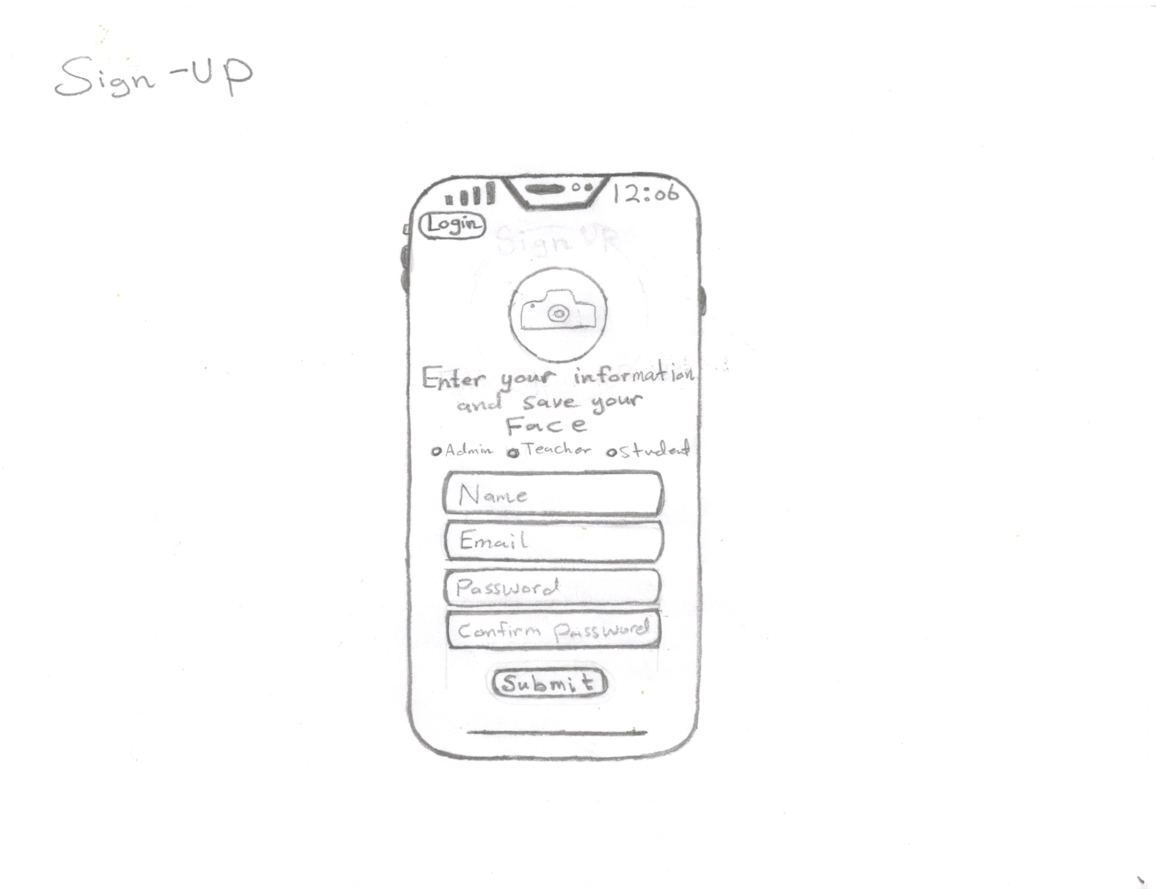 Sign-UP
12:06
Login
Enter your information
and save your
Face
Admin Teacher Student
Name
Email
Password
Confirm Password
Submit